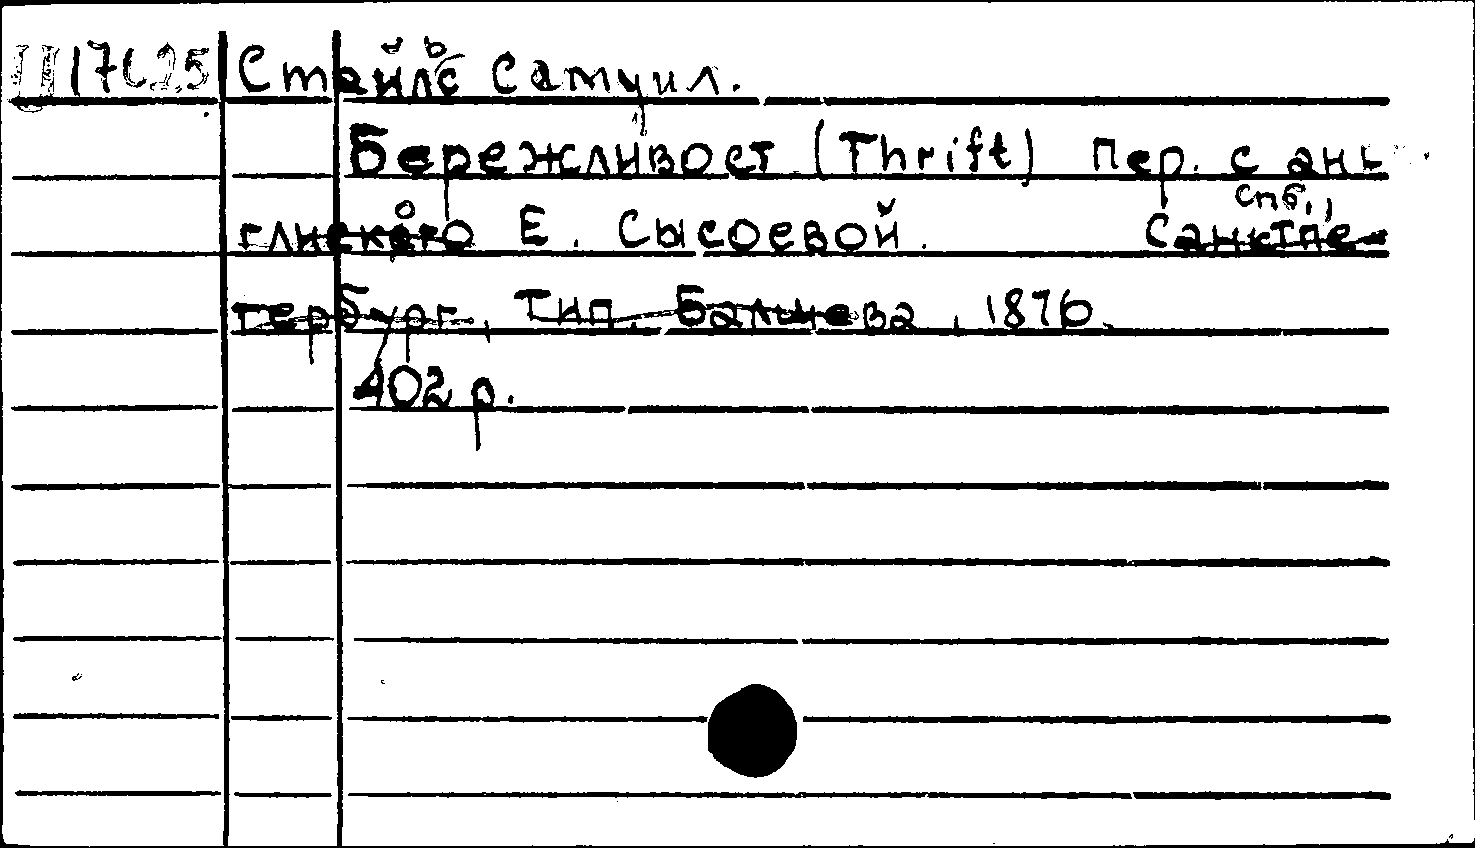 II 17625 Стайльс Самуил.
Бережливост (Thrift) Пер. с анг-
глискаго Е. Сысоевой. Санктпе-
спб.,
тербург, Тип. Балшева, 1876.
402 p.